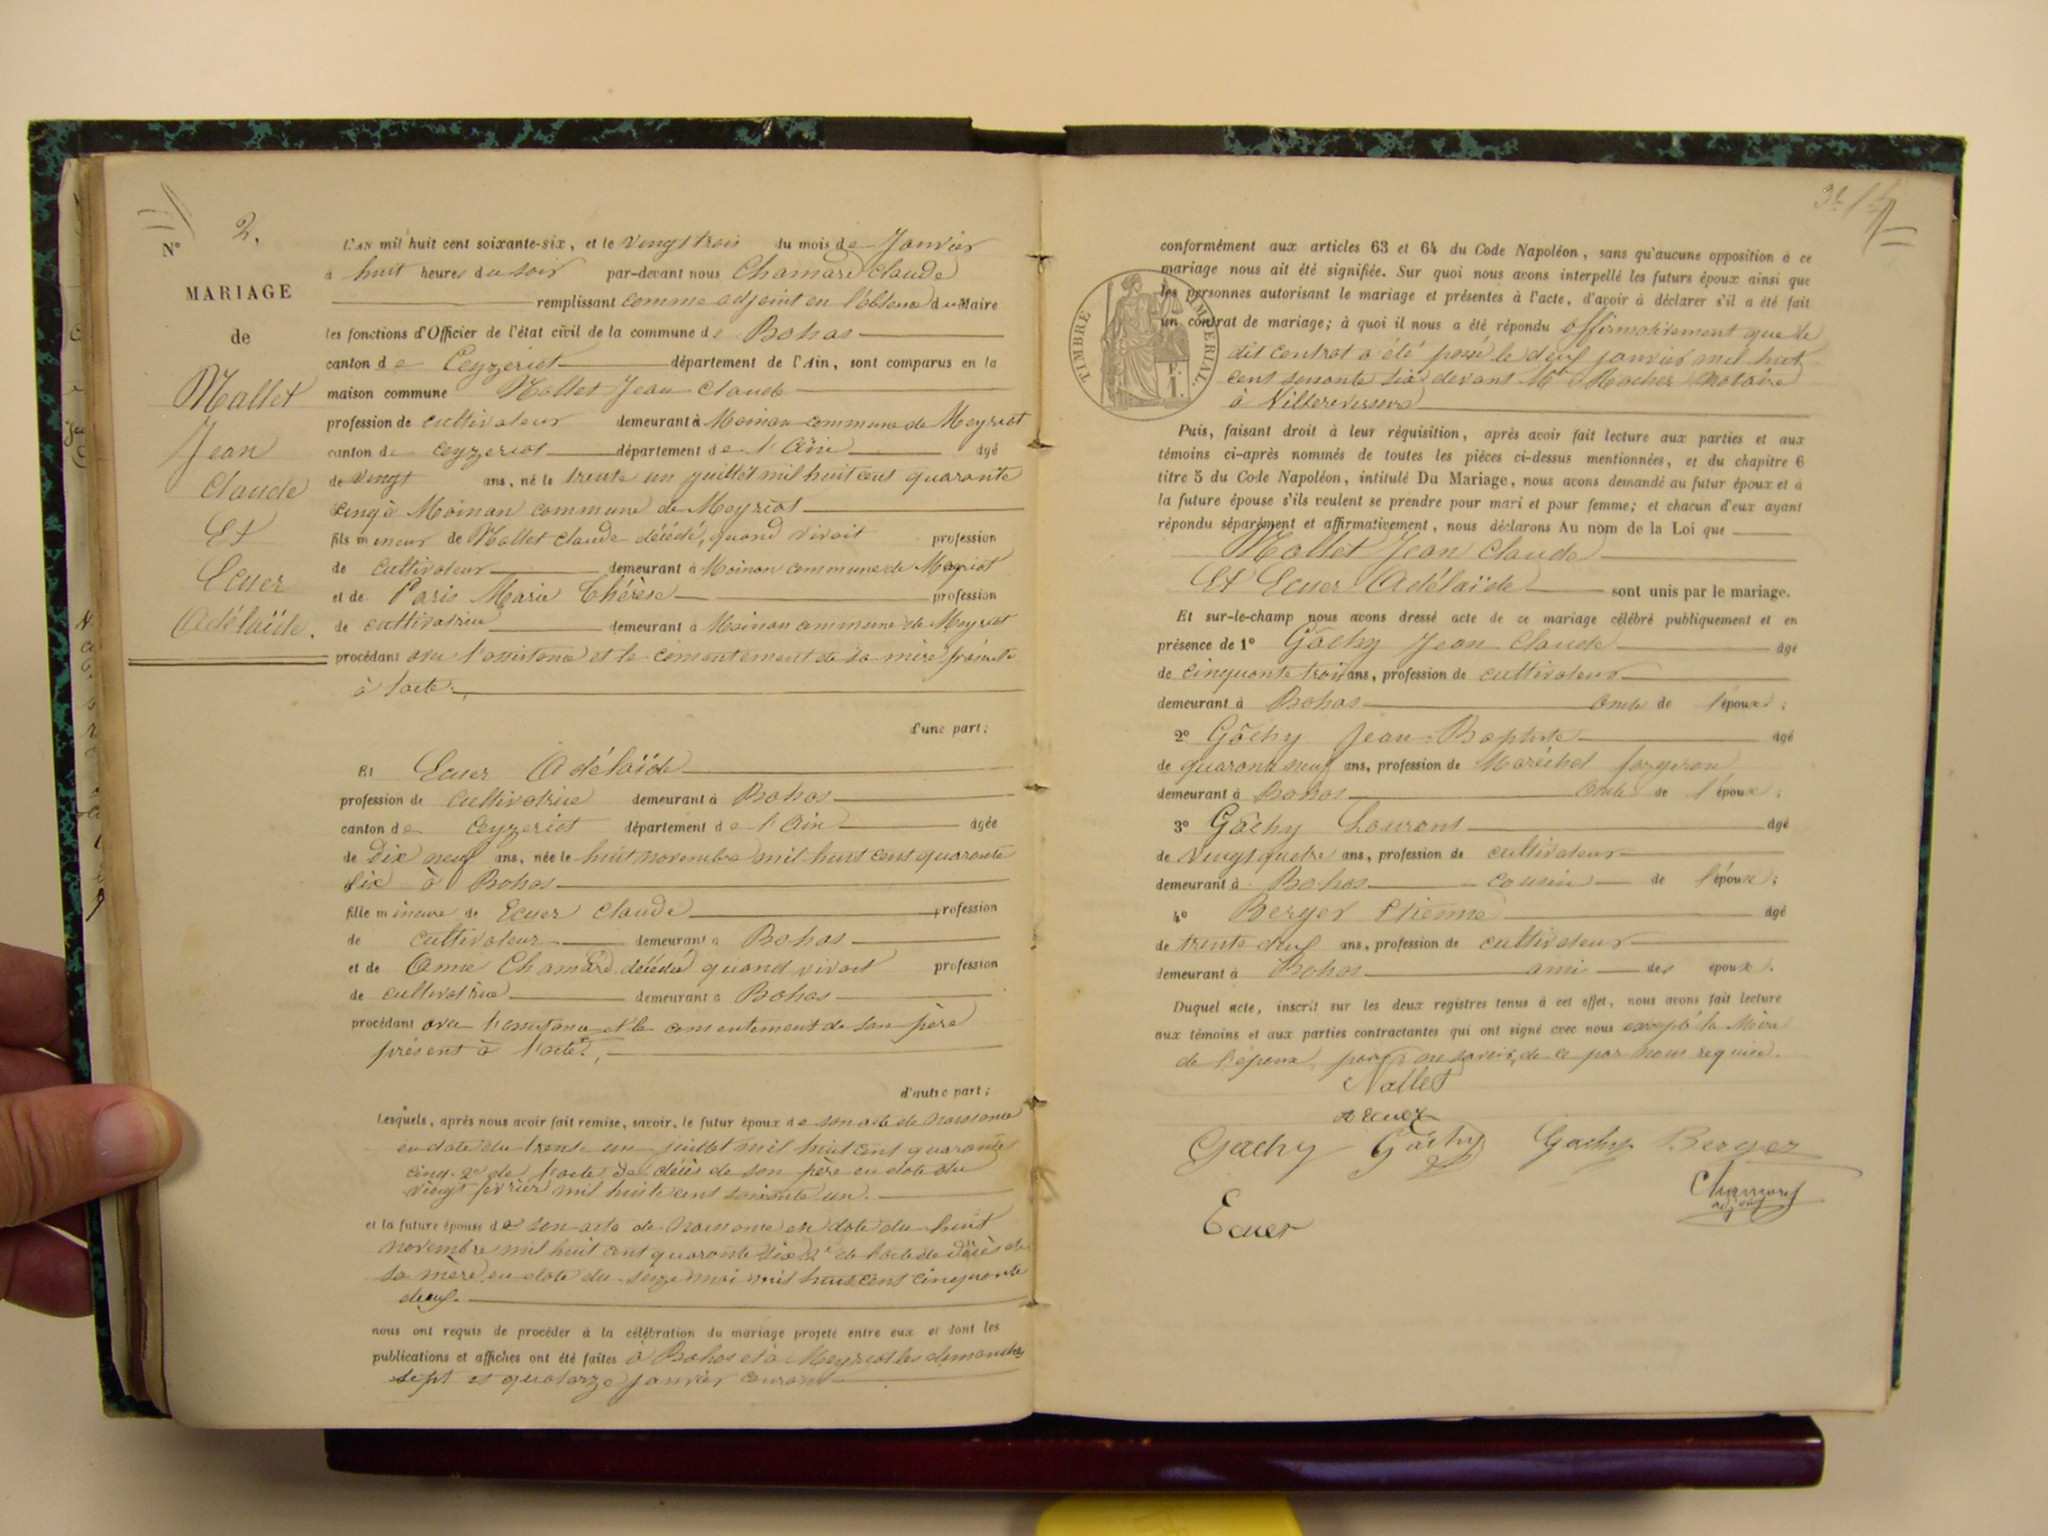 N° 2.
MARIAGE
de
Nallet
Jean
Claude
Et
Ecuer
Adélaïde.
L'AN mil huit cent soixante-six, et le vingt trois du mois de Janvier
à huit heures du soir par-devant nous Chamard Claude
remplissant comme adjoint en l'absence du Maire
les fonctions d'Officier de l'état civil de la commune de Bohas
canton de Ceyzeriat département de l'Ain, sont comparus en la
maison commune Nallet Jean Claude
profession de cultivateur demeurant à Moinan commune de Meyriat
canton de Ceyzeriat département de l'Ain âgé
de vingt ans, né le trente un juillet mil huit cent quarante
cinq à Moinan commune de Meyriat
fils mineur de Nallet Claude décédé, quand vivait profession
de cultivateur demeurant à Moinan commune de Meyriat
et de Paris Marie Thérèse profession
de cultivatrice demeurant à Moinan commune de Meyriat
procédant avec l'assistance et le consentement de sa mère présente
à l'acte,
d'une part;
Et Ecuer Adélaïde
profession de cultivatrice demeurant à Bohas
canton de Ceyzeriat département de l'Ain âgée
de Dix neuf ans, née le huit novembre mil huit cent quarante
six à Bohas
fille mineure de Ecuer Claude profession
de cultivateur demeurant à Bohas
et de Anne Chamard décédée quand vivait profession
de cultivatrice demeurant à Bohas
procédant avec l'assistance et le consentement de son père
présent à l'acte,
d'autre part;
Lesquels, après nous avoir fait remise, savoir, le futur époux de son acte de naissance
en date du trente un juillet mil huit cent quarante
cinq 2° de l'acte de décès de son père en date du
vingt février mil huit cent soixante un.
et la future épouse de son acte de naissance en date du huit
novembre mil huit cent quarante six 2° de l'acte de décès de
sa mère en date du seize mai mil huit cent cinquante
deux.
nous ont requis de procéder à la célébration du mariage projeté entre eux et dont les
publications et affiches ont été faites à Bohas et à Meyriat les dimanches
sept et quatorze janvier courant
conformément aux articles 63 et 64 du Code Napoléon, sans qu'aucune opposition à ce
mariage nous ait été signifiée. Sur quoi nous avons interpellé les futurs époux ainsi que
les personnes autorisant le mariage et présentes à l'acte, d'avoir à déclarer s'il a été fait
un contrat de mariage; à quoi il nous a été répondu affirmativement que le
dit contrat a été passé le deux janvier mil huit
cent soixante six devant Me Rocher notaire
à Villereversure
TIMBRE IMPÉRIAL.
Puis, faisant droit à leur réquisition, après avoir fait lecture aux parties et aux
témoins ci-après nommés de toutes les pièces ci-dessus mentionnées, et du chapitre 6
titre 5 du Code Napoléon, intitulé Du Mariage, nous avons demandé au futur époux et à
la future épouse s'ils veulent se prendre pour mari et pour femme; et chacun d'eux ayant
répondu séparément et affirmativement, nous déclarons Au nom de la Loi que
Nallet Jean Claude
Et Ecuer Adélaïde sont unis par le mariage.
Et sur-le-champ nous avons dressé acte de ce mariage célébré publiquement et en
présence de 1° Gâchy Jean Claude âgé
de cinquante trois ans, profession de cultivateur
demeurant à Bohas oncle de l'époux;
2° Gâchy Jean-Baptiste âgé
de quarante neuf ans, profession de Maréchal forgeron
demeurant à Bohas oncle de l'époux;
3° Gâchy Laurent âgé
de vingt quatre ans, profession de cultivateur
demeurant à Bohas cousin de l'époux;
4° Berger Etienne âgé
de trente deux ans, profession de cultivateur
demeurant à Bohas ami des époux.
Duquel acte, inscrit sur les deux registres tenus à cet effet, nous avons fait lecture
aux témoins et aux parties contractantes qui ont signé avec nous excepté la Mère
de l'époux, pour ne savoir, de ce par nous requise.
Nallet
A Ecuer
Gachy Gâchy Gachy Berger
Chamard
adjoint
Ecuer